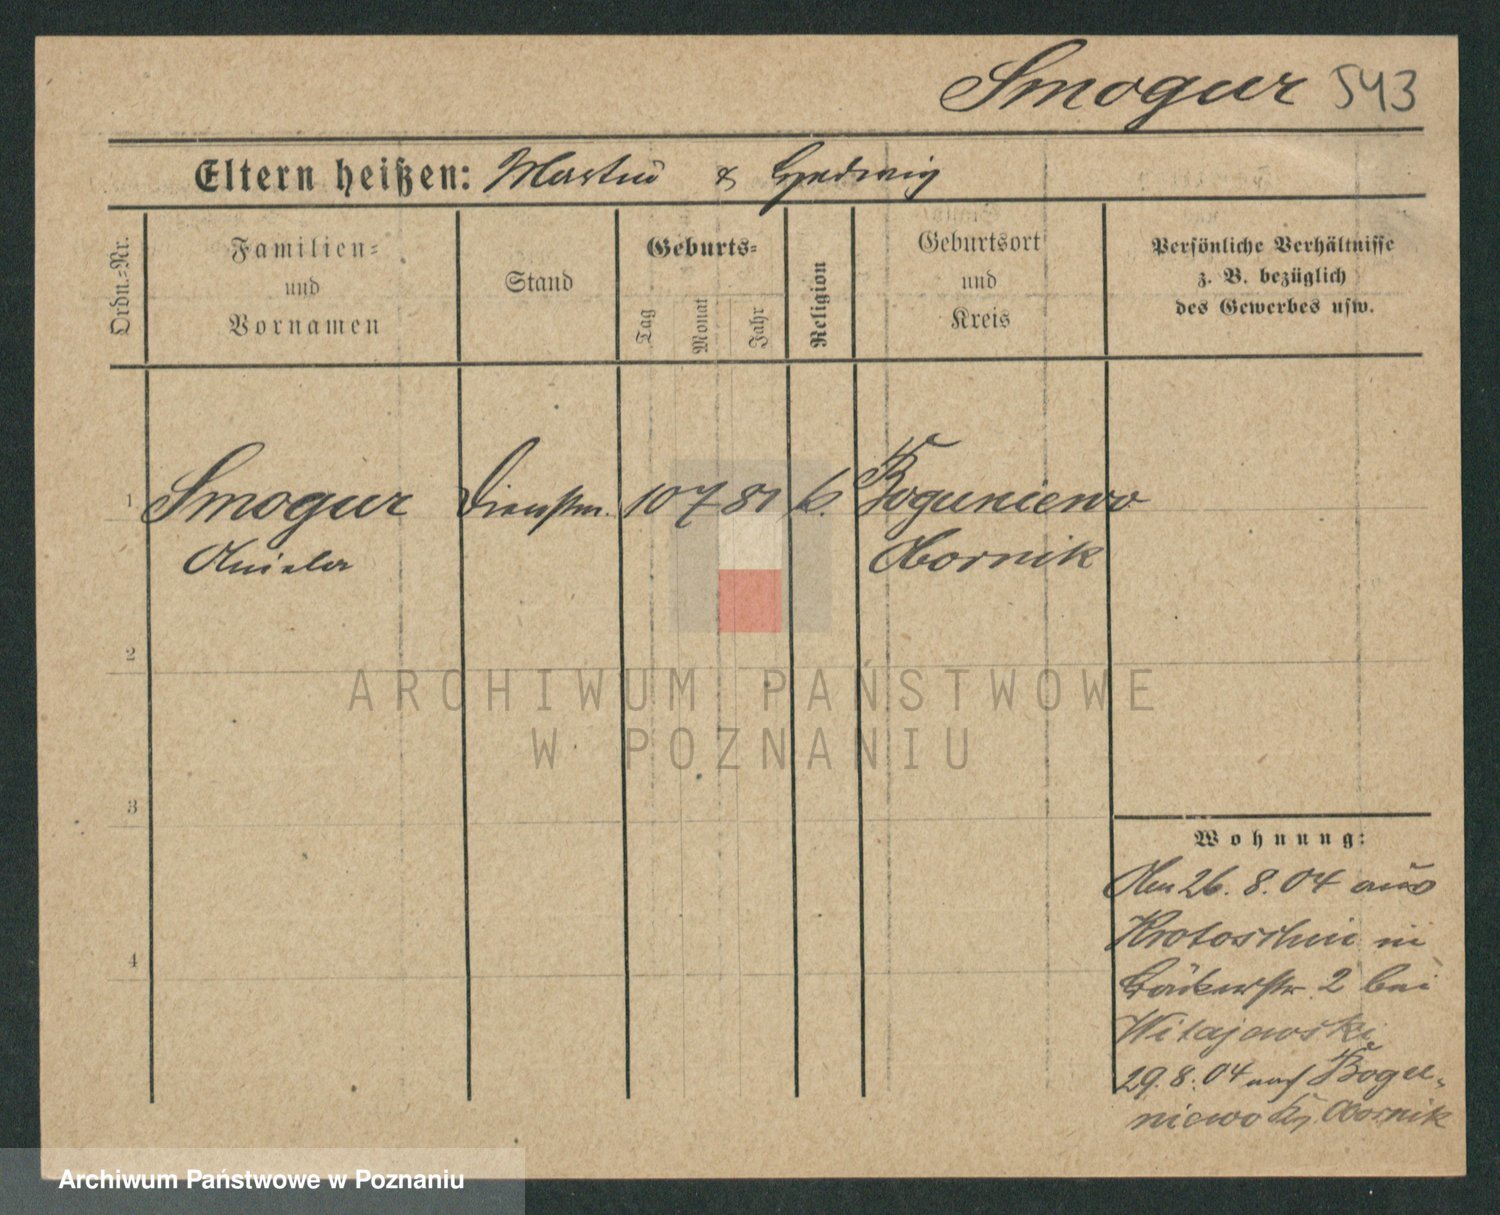 Smogur 543
Eltern heißen: Martin & Hedwig
Ordn.-Nr.
Familien-
und
Vornamen
Stand
Geburts-
Tag
Monat
Jahr
Religion
Geburtsort
und
Kreis
Persönliche Verhältnisse
z. B. bezüglich
des Gewerbes usw.
1 Smogur Dienstm. 10 7 81 k. Boguniewo
Aniela Obornik
2
3
4
Wohnung:
Am 26. 8. 04 aus
Krotoschin in
Bäckerstr. 2 bei
Witajewski
29. 8. 04 nach Bogu-
niewo Kr. Obornik
ARCHIWUM PAŃSTWOWE
W POZNANIU
Archiwum Państwowe w Poznaniu